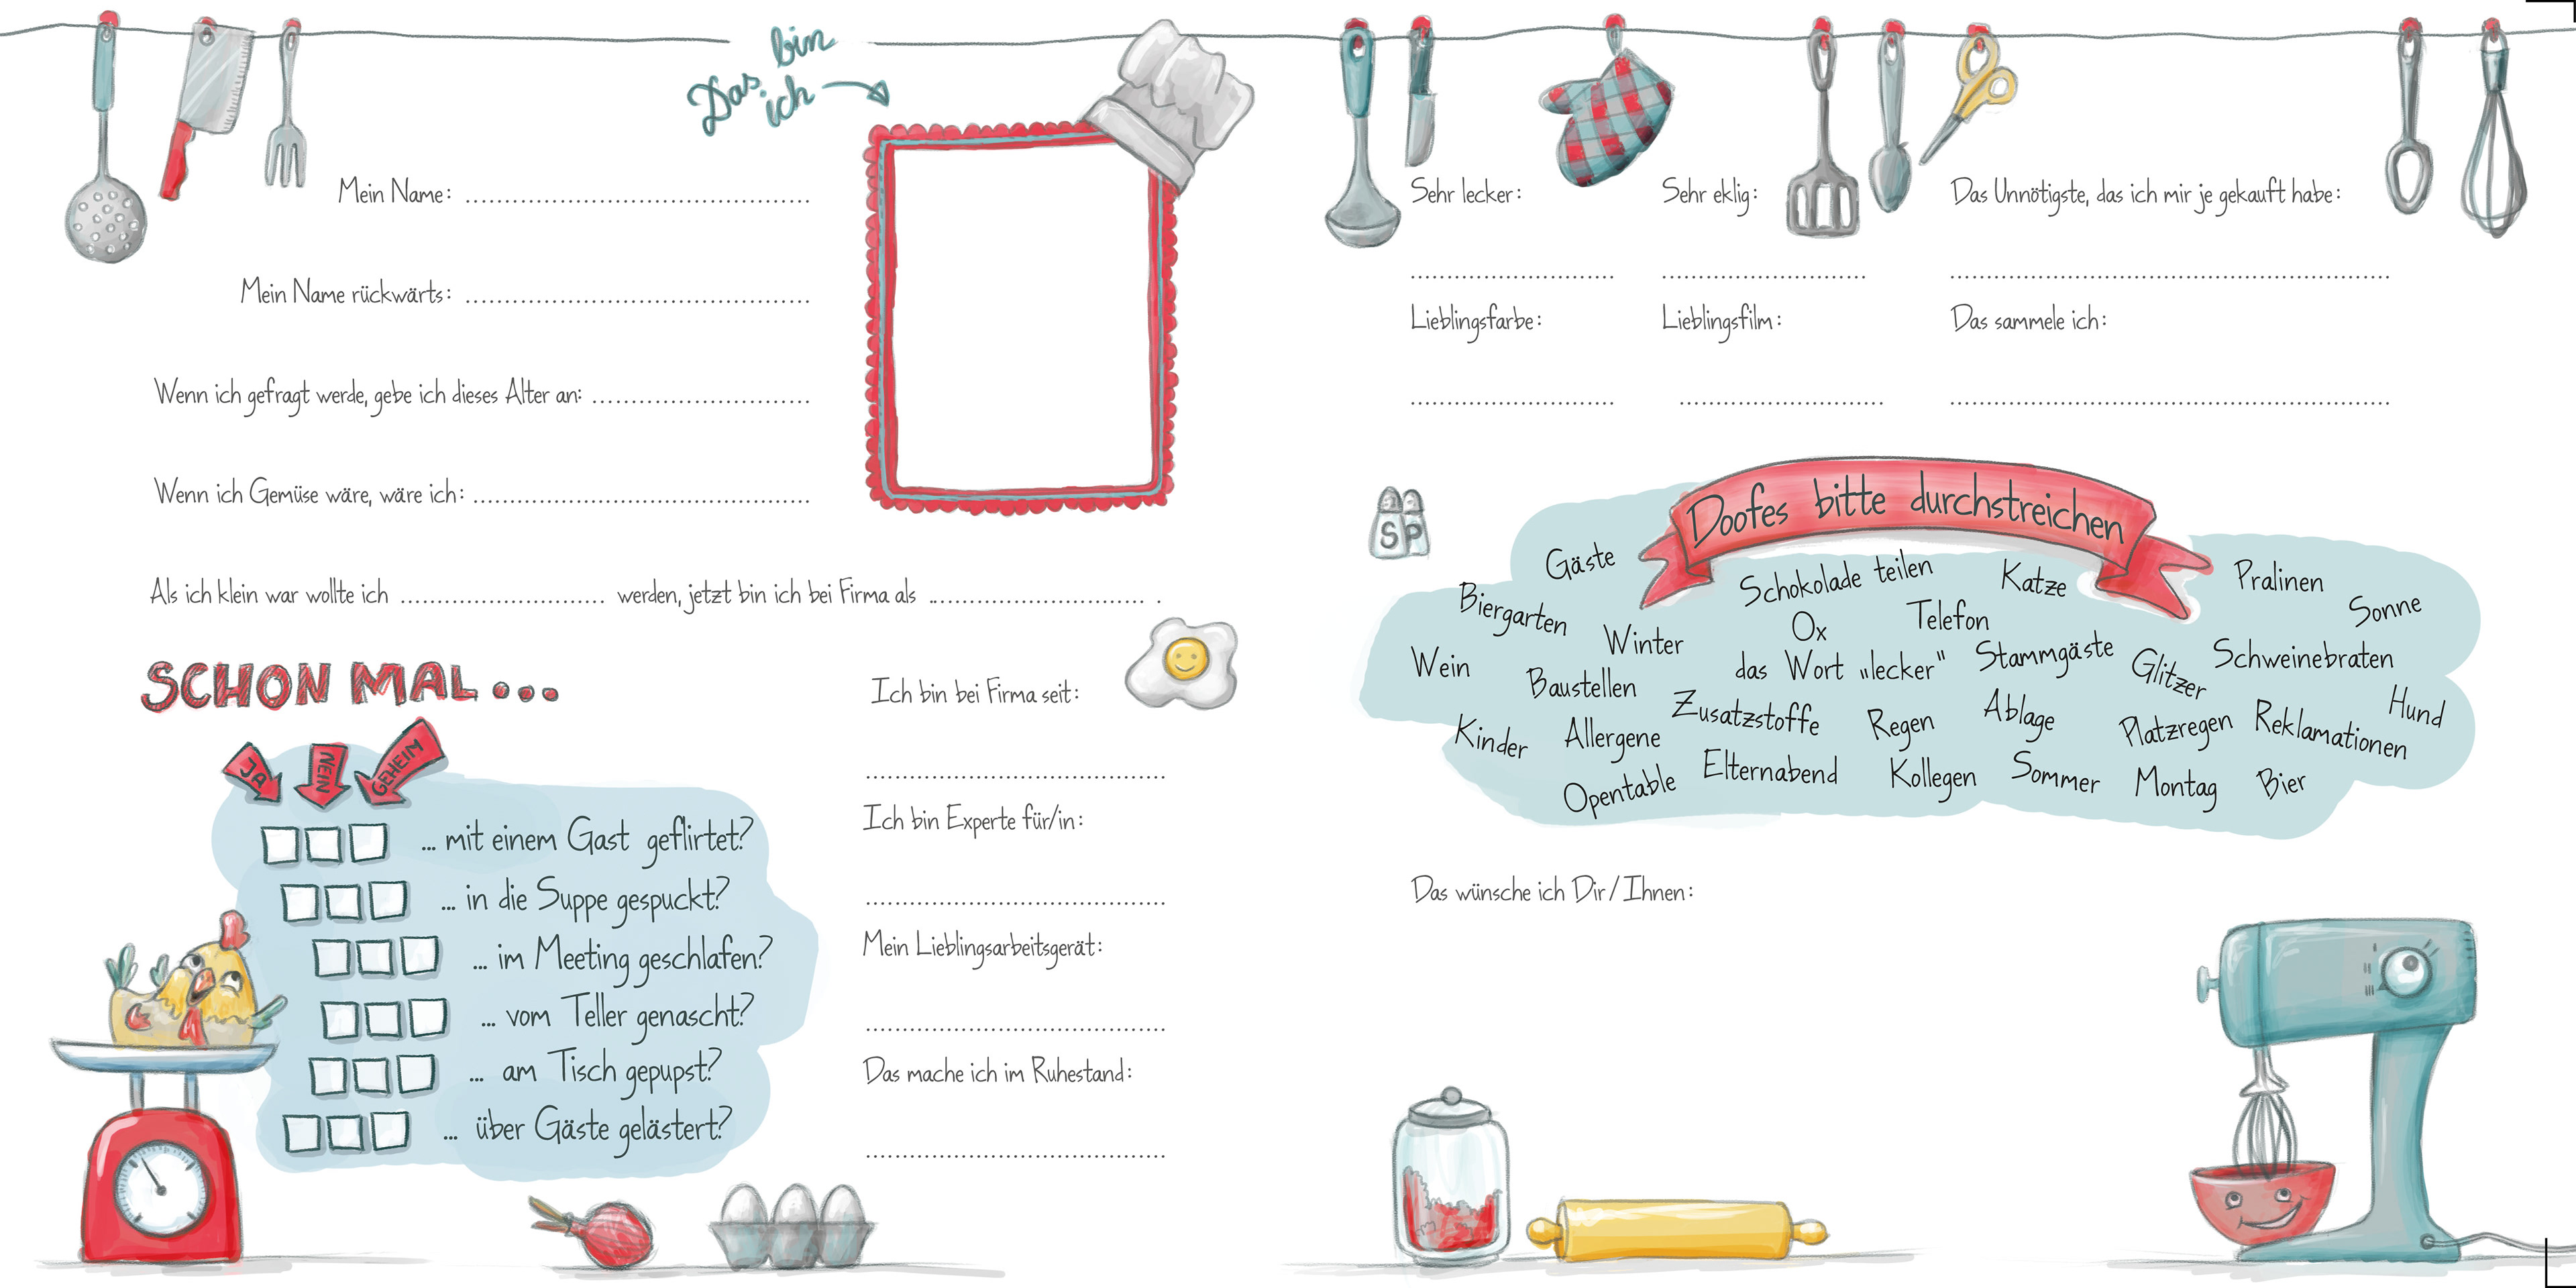 Das bin ich
Mein Name:
Mein Name rückwärts:
Wenn ich gefragt werde, gebe ich dieses Alter an:
Wenn ich Gemüse wäre, wäre ich:
Als ich klein war wollte ich ........ werden, jetzt bin ich bei Firma als ........ .
SCHON MAL ...
JA NEIN GEHEIM
... mit einem Gast geflirtet?
... in die Suppe gespuckt?
... im Meeting geschlafen?
... vom Teller genascht?
... am Tisch gepupst?
... über Gäste gelästert?
Ich bin bei Firma seit:
Ich bin Experte für/in:
Mein Lieblingsarbeitsgerät:
Das mache ich im Ruhestand:
Sehr lecker:
Sehr eklig:
Das Unnötigste, das ich mir je gekauft habe:
Lieblingsfarbe:
Lieblingsfilm:
Das sammele ich:
S P
Doofes bitte durchstreichen
Gäste
Schokolade teilen
Katze
Pralinen
Biergarten
Sonne
Winter
Ox
Telefon
Wein
Baustellen
das Wort „lecker"
Stammgäste
Glitzer
Schweinebraten
Kinder
Allergene
Zusatzstoffe
Regen
Ablage
Platzregen
Reklamationen
Hund
Opentable
Elternabend
Kollegen
Sommer
Montag
Bier
Das wünsche ich Dir / Ihnen: